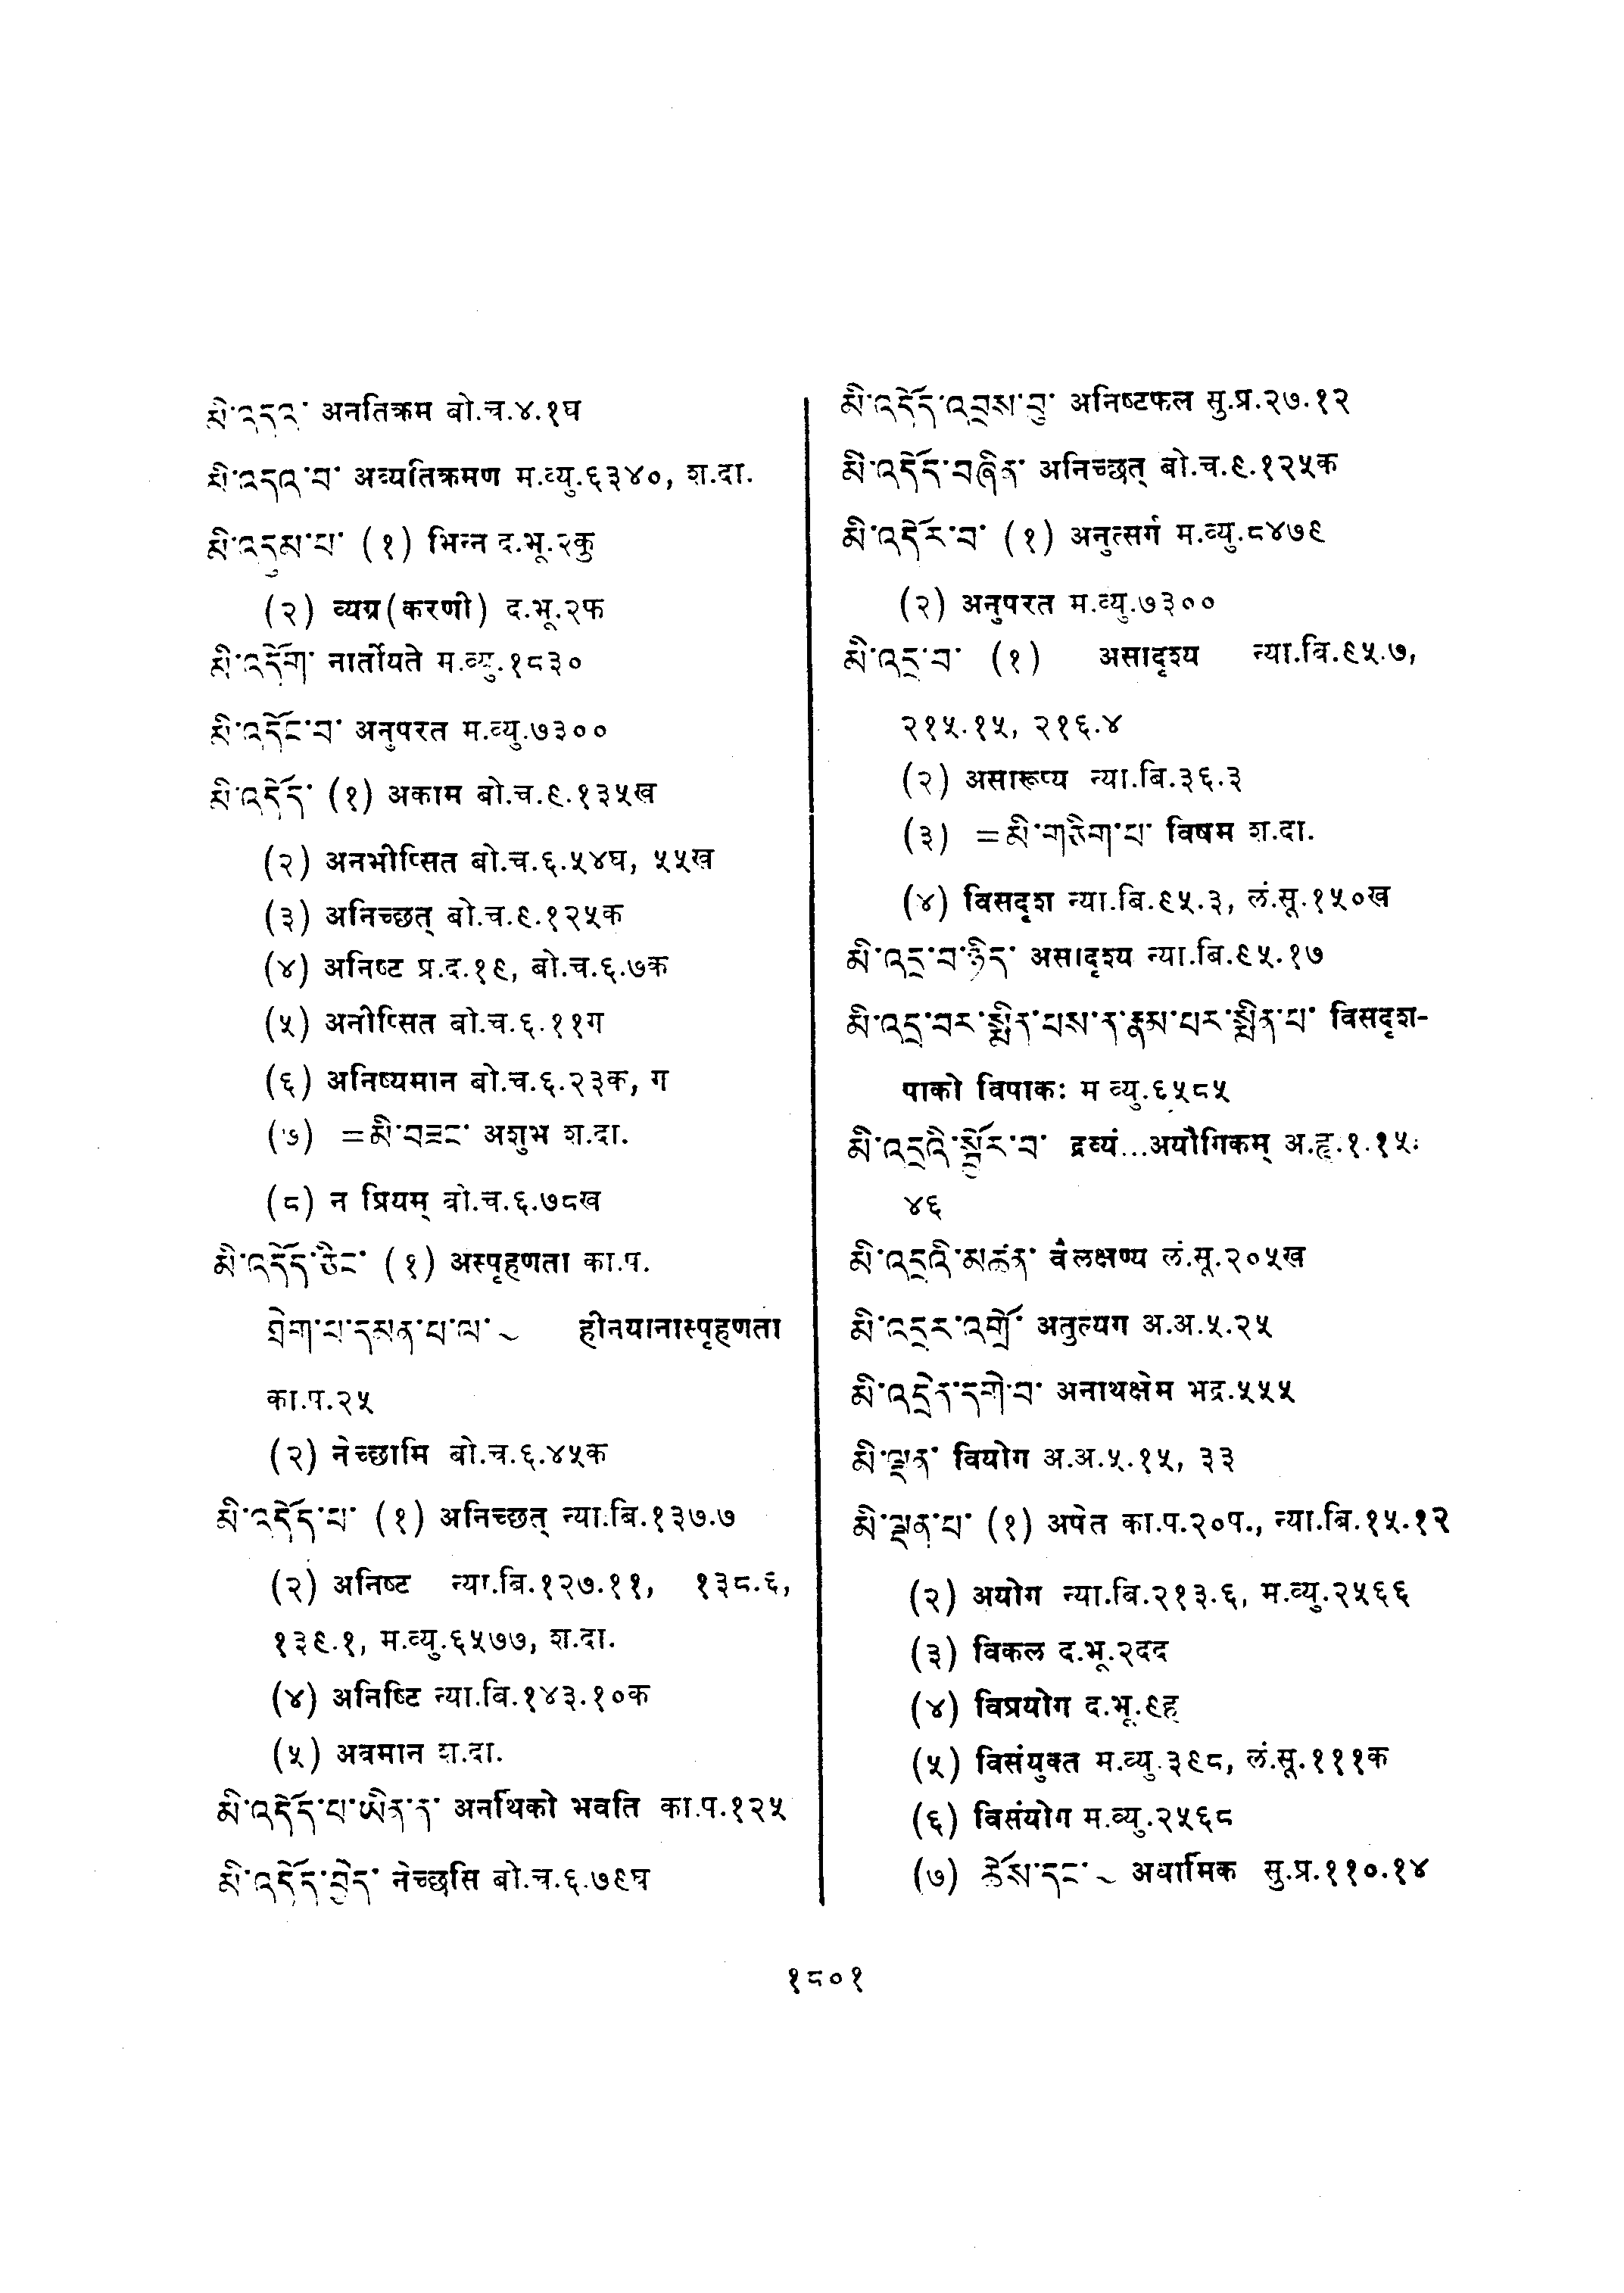 མི་འདའ་ अनतिक्रम बो.च.४.१घ
མི་འདའ་བ་ अव्यतिक्रमण म.व्यु.६३४०, श.दा.
མི་འདུམ་པ་ (१) भिन्न द.भू.२कु
(२) व्यग्र(करणी) द.भू.२फ
མི་འདོག་ नार्तीयते म.व्यु.१८३०
མི་འདོང་བ་ अनुपरत म.व्यु.७३००
མི་འདོད་ (१) अकाम बो.च.९.१३५ख
(२) अनभीप्सित बो.च.६.५४घ, ५५ख
(३) अनिच्छत् बो.च.९.१२५क
(४) अनिष्ट प्र.द.१९, बो.च.६.७क
(५) अनीप्सित बो.च.६.११ग
(६) अनिष्यमान बो.च.६.२३क, ग
(७) =མི་བཟང་ अशुभ श.दा.
(८) न प्रियम् बो.च.६.७८ख
མི་འདོད་ཅིང་ (१) अस्पृहणता का.प.
ཐེག་པ་དམན་པ་ལ་~ हीनयानास्पृहणता
का.प.२५
(२) नेच्छामि बो.च.६.४५क
མི་འདོད་པ་ (१) अनिच्छत् न्या.बि.१३७.७
(२) अनिष्ट न्या.बि.१२७.११, १३८.६,
१३९.१, म.व्यु.६५७७, श.दा.
(४) अनिष्टि न्या.बि.१४३.१०क
(५) अवमान श.दा.
མི་འདོད་པ་ཡིན་ན་ अनर्थिको भवति का.प.१२५
མི་འདོད་བྱེད་ नेच्छसि बो.च.६.७९घ
མི་འདོད་འབྲས་བུ་ अनिष्टफल सु.प्र.२७.१२
མི་འདོད་བཞིན་ अनिच्छत् बो.च.९.१२५क
མི་འདོར་བ་ (१) अनुत्सर्ग म.व्यु.८४७९
(२) अनुपरत म.व्यु.७३००
མི་འདྲ་བ་ (१) असादृश्य न्या.बि.९५.७,
२१५.१५, २१६.४
(२) असारूप्य न्या.बि.३६.३
(३) =མི་གཅིག་པ་ विषम श.दा.
(४) विसदृश न्या.बि.९५.३, लं.सू.१५०ख
མི་འདྲ་བ་ཉིད་ असादृश्य न्या.बि.९५.१७
མི་འདྲ་བར་སྨིན་པས་ན་རྣམ་པར་སྨིན་པ་ विसदृश-
पाको विपाकः म व्यु.६५८५
མི་འདྲའི་སྦྱོར་བ་ द्रव्यं...अयौगिकम् अ.हृ.१.१५:
४६
མི་འདྲའི་མཚན་ वैलक्षण्य लं.सू.२०५ख
མི་འདྲར་འགྲོ་ अतुल्यग अ.अ.५.२५
མི་འདྲེན་དགེ་བ་ अनाथक्षेम भद्र.५५५
མི་ལྡན་ वियोग अ.अ.५.१५, ३३
མི་ལྡན་པ་ (१) अपेत का.प.२०प., न्या.बि.१५.१२
(२) अयोग न्या.बि.२१३.६, म.व्यु.२५६६
(३) विकल द.भू.२दद
(४) विप्रयोग द.भू.९ह
(५) विसंयुक्त म.व्यु.३९८, लं.सू.१११क
(६) विसंयोग म.व्यु.२५६८
(७) ཆོས་དང་~ अधार्मिक सु.प्र.११०.१४
१८०१